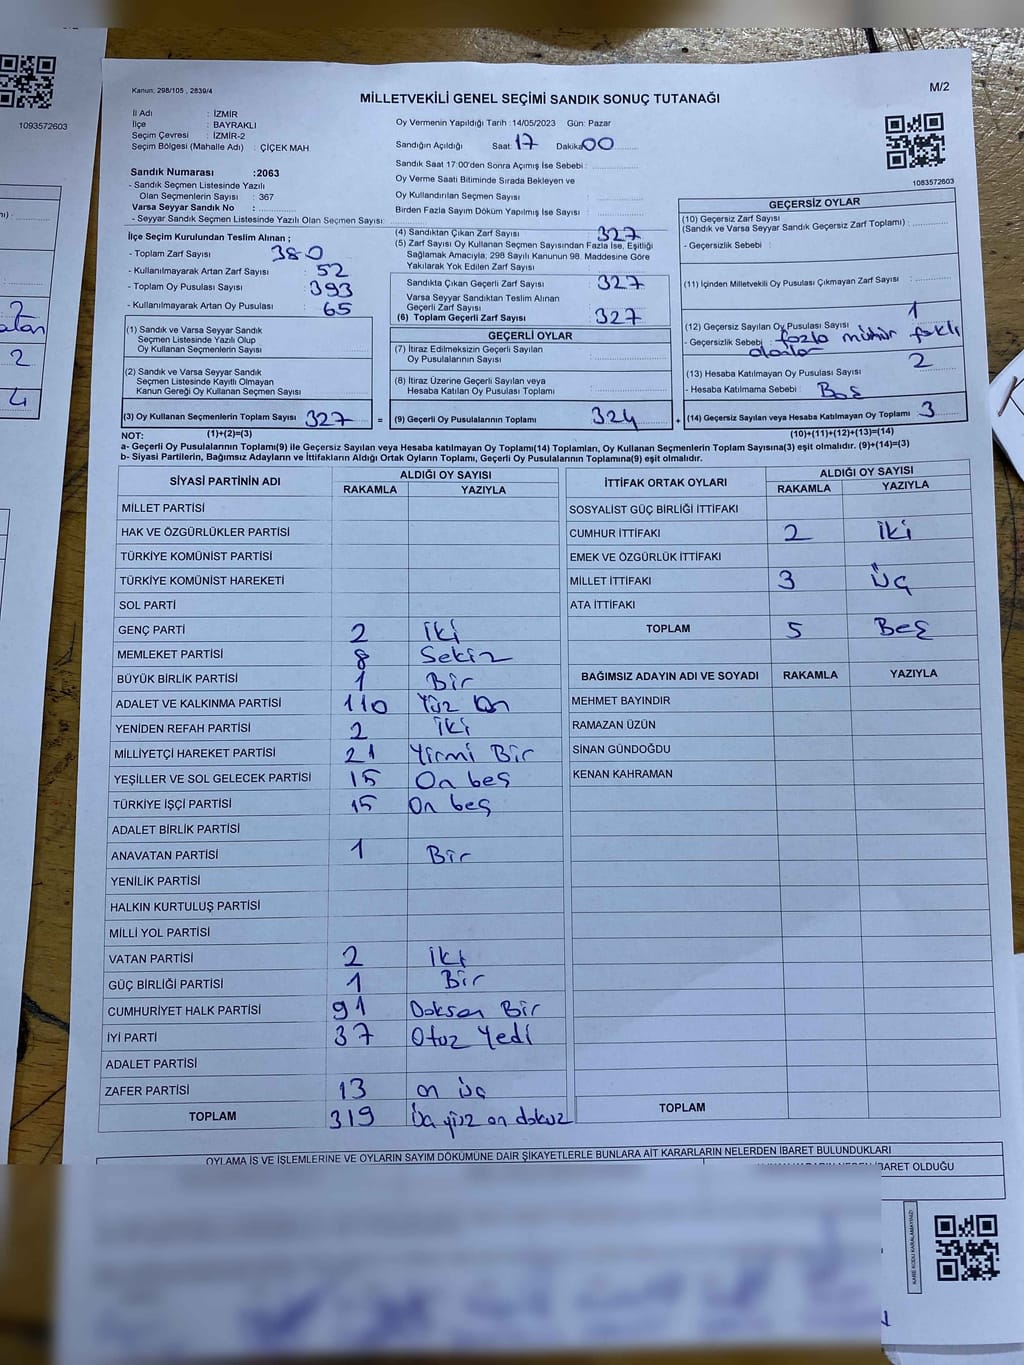 Kanun: 298/105 , 2839/4
M/2
MİLLETVEKİLİ GENEL SEÇİMİ SANDIK SONUÇ TUTANAĞI
1093572603
1083572603
İl Adı : İZMİR
İlçe : BAYRAKLI
Seçim Çevresi : İZMİR-2
Seçim Bölgesi (Mahalle Adı) : ÇİÇEK MAH.
Sandık Numarası :2063
- Sandık Seçmen Listesinde Yazılı
Olan Seçmenlerin Sayısı : 367
Varsa Seyyar Sandık No :
- Seyyar Sandık Seçmen Listesinde Yazılı Olan Seçmen Sayısı:
Oy Vermenin Yapıldığı Tarih :14/05/2023 Gün: Pazar
Sandığın Açıldığı Saat: 17 Dakika 00
Sandık Saat 17:00'den Sonra Açılmış İse Sebebi :
Oy Verme Saati Bitiminde Sırada Bekleyen ve
Oy Kullandırılan Seçmen Sayısı :
Birden Fazla Sayım Döküm Yapılmış İse Sayısı :
İlçe Seçim Kurulundan Teslim Alınan ;
- Toplam Zarf Sayısı : 380
- Kullanılmayarak Artan Zarf Sayısı : 52
- Toplam Oy Pusulası Sayısı : 393
- Kullanılmayarak Artan Oy Pusulası : 65
(1) Sandık ve Varsa Seyyar Sandık
Seçmen Listesinde Yazılı Olup
Oy Kullanan Seçmenlerin Sayısı :
(2) Sandık ve Varsa Seyyar Sandık
Seçmen Listesinde Kayıtlı Olmayan
Kanun Gereği Oy Kullanan Seçmen Sayısı :
(3) Oy Kullanan Seçmenlerin Toplam Sayısı : 327
(1)+(2)=(3)
(4) Sandıktan Çıkan Zarf Sayısı : 327
(5) Zarf Sayısı Oy Kullanan Seçmen Sayısından Fazla İse, Eşitliği
Sağlamak Amacıyla, 298 Sayılı Kanunun 98. Maddesine Göre
Yakılarak Yok Edilen Zarf Sayısı :
Sandıkta Çıkan Geçerli Zarf Sayısı : 327
Varsa Seyyar Sandıktan Teslim Alınan
Geçerli Zarf Sayısı :
(6) Toplam Geçerli Zarf Sayısı : 327
GEÇERLİ OYLAR
(7) İtiraz Edilmeksizin Geçerli Sayılan
Oy Pusulasının Sayısı :
(8) İtiraz Üzerine Geçerli Sayılan veya
Hesaba Katılan Oy Pusulası Toplamı :
= (9) Geçerli Oy Pusulalarının Toplamı : 324 +
GEÇERSİZ OYLAR
(10) Geçersiz Zarf Sayısı
(Sandık ve Varsa Seyyar Sandık Geçersiz Zarf Toplamı) :
- Geçersizlik Sebebi :
(11) İçinden Milletvekili Oy Pusulası Çıkmayan Zarf Sayısı :
(12) Geçersiz Sayılan Oy Pusulası Sayısı : 1
- Geçersizlik Sebebi : fazla mühür faklı
alanlar
(13) Hesaba Katılmayan Oy Pusulası Sayısı : 2
- Hesaba Katılmama Sebebi : Boş
(14) Geçersiz Sayılan veya Hesaba Katılmayan Oy Toplamı : 3
(10)+(11)+(12)+(13)=(14)
NOT:
a- Geçerli Oy Pusulalarının Toplamı(9) ile Geçersiz Sayılan veya Hesaba katılmayan Oy Toplamı(14) Toplamları, Oy Kullanan Seçmenlerin Toplam Sayısına(3) eşit olmalıdır. (9)+(14)=(3)
b- Siyasi Partilerin, Bağımsız Adayların ve İttifakların Aldığı Ortak Oyların Toplamı, Geçerli Oy Pusulalarının Toplamına(9) eşit olmalıdır.
SİYASİ PARTİNİN ADI ALDIĞI OY SAYISI
RAKAMLA YAZIYLA
MİLLET PARTİSİ
HAK VE ÖZGÜRLÜKLER PARTİSİ
TÜRKİYE KOMÜNİST PARTİSİ
TÜRKİYE KOMÜNİST HAREKETİ
SOL PARTİ
GENÇ PARTİ 2 İki
MEMLEKET PARTİSİ 8 Sekiz
BÜYÜK BİRLİK PARTİSİ 1 Bir
ADALET VE KALKINMA PARTİSİ 110 Yüz On
YENİDEN REFAH PARTİSİ 2 İki
MİLLİYETÇİ HAREKET PARTİSİ 21 Yirmi Bir
YEŞİLLER VE SOL GELECEK PARTİSİ 15 On beş
TÜRKİYE İŞÇİ PARTİSİ 15 On beş
ADALET BİRLİK PARTİSİ
ANAVATAN PARTİSİ 1 Bir
YENİLİK PARTİSİ
HALKIN KURTULUŞ PARTİSİ
MİLLİ YOL PARTİSİ
VATAN PARTİSİ 2 İki
GÜÇ BİRLİĞİ PARTİSİ 1 Bir
CUMHURİYET HALK PARTİSİ 91 Doksan Bir
İYİ PARTİ 37 Otuz Yedi
ADALET PARTİSİ
ZAFER PARTİSİ 13 on üç
TOPLAM 319 Üç yüz on dokuz
İTTİFAK ORTAK OYLARI ALDIĞI OY SAYISI
RAKAMLA YAZIYLA
SOSYALİST GÜÇ BİRLİĞİ İTTİFAKI
CUMHUR İTTİFAKI 2 İki
EMEK VE ÖZGÜRLÜK İTTİFAKI
MİLLET İTTİFAKI 3 Üç
ATA İTTİFAKI
TOPLAM 5 Beş
BAĞIMSIZ ADAYIN ADI VE SOYADI RAKAMLA YAZIYLA
MEHMET BAYINDIR
RAMAZAN ÜZÜN
SİNAN GÜNDOĞDU
KENAN KAHRAMAN
TOPLAM
OYLAMA İŞ VE İŞLEMLERİNE VE OYLARIN SAYIM DÖKÜMÜNE DAİR ŞİKAYETLERLE BUNLARA AİT KARARLARIN NELERDEN İBARET BULUNDUKLARI
İBARET OLDUĞU
KARE KODU KARALAMAYINIZ!
2
4